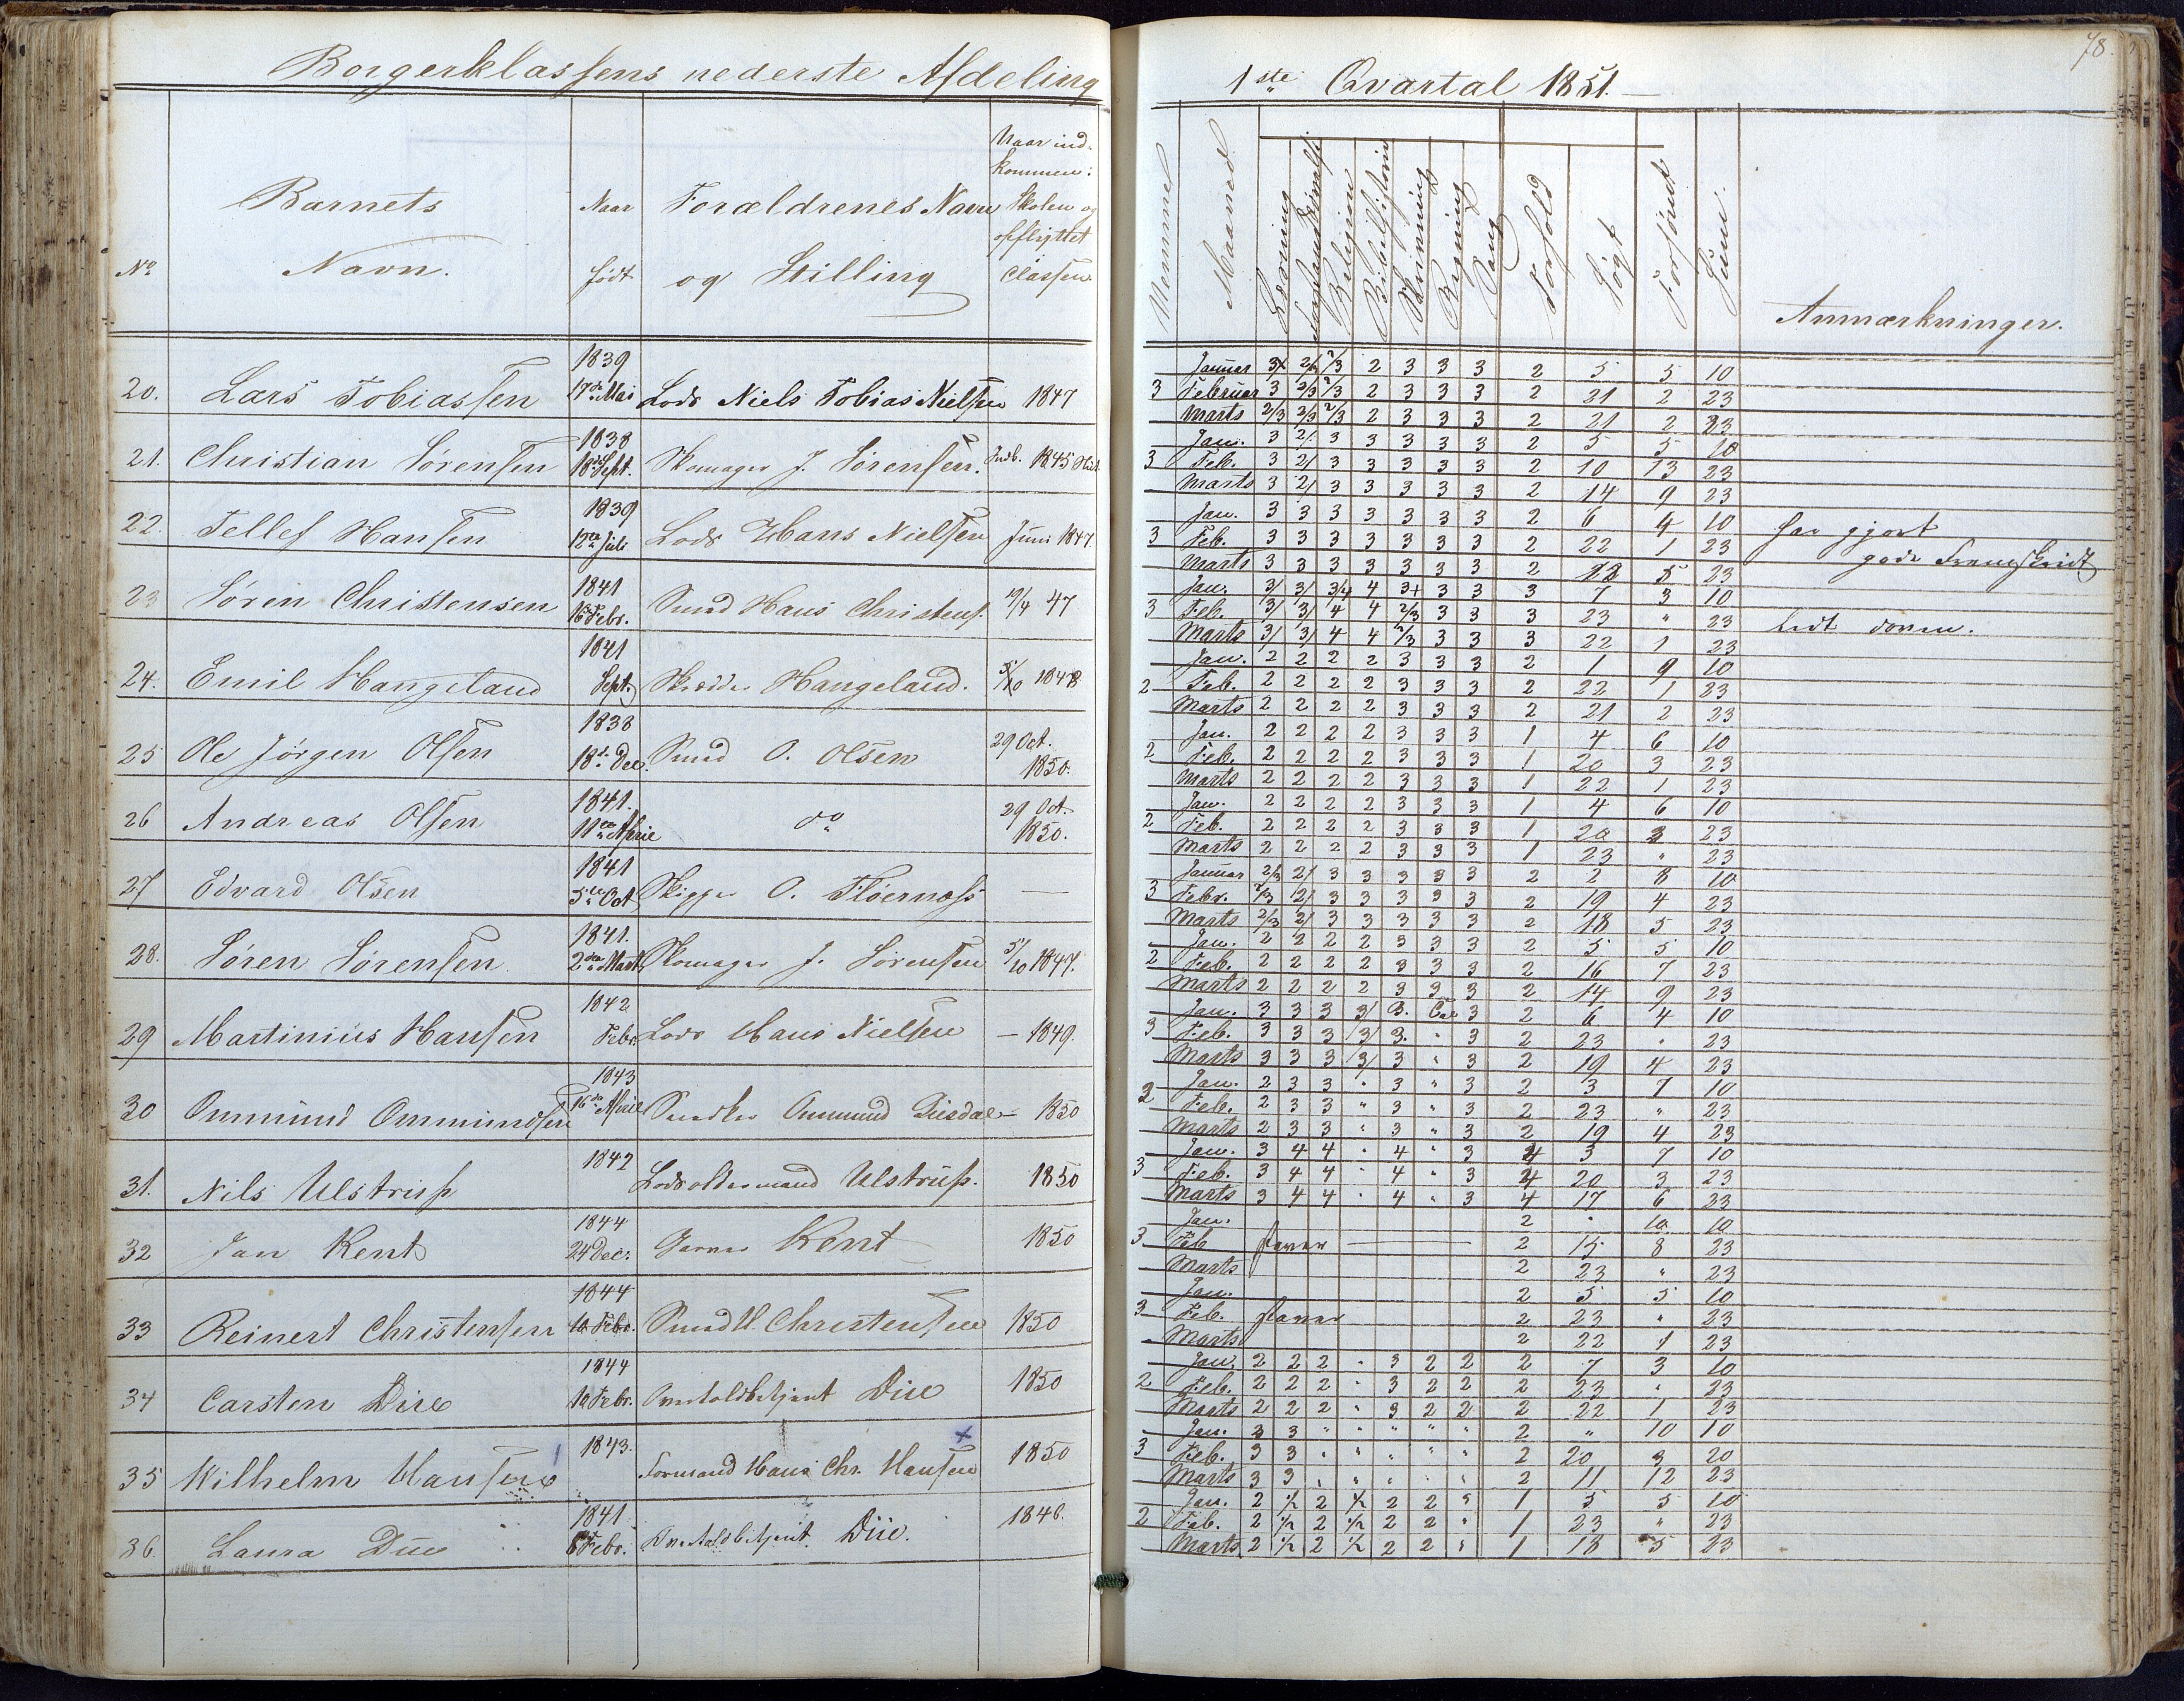 Borgerklassens nederste Afdeling
No
Barnets
Navn.
Naar
født
Forældrenes Navn
og Stilling
Naar ind-
kommen i
Skolen og
opflyttet
Classen
20. Lars Tobiassen 1839 17de Mai Lods Niels Tobias Nielsen 1847
21. Christian Sørensen 1838 18de Sept. Skomager J. Sørensen. Indb. 1845
22. Tellef Hansen 1839 12te Juli Lods Hans Nielsen Juni 1847
23 Søren Christensen 1841 16 Febr. Smed Hans Christens. 19/4 47
24. Emil Hangeland 1841 Sept. Skrædder Hangeland. 5/10 1848
25 Ole Jørgen Olsen 1838 18de Dec. Smed O. Olsen 29 Oct. 1850.
26 Andreas Olsen 1841. 11te April do 29 Oct. 1850.
27 Edvard Olsen 1841 5te Oct Skipper O. Fløernæss —
28. Søren Sørensen 1841. 2den Marts Skomager J. Sørensen 5/10 1847.
29 Martinius Hansen 1842 Febr. Lods Hans Nielsen — 1849.
30 Ommund Ommundsen 1843 16de April Snedker Ommund — 1850
31. Nils Ulstrup 1842 Lodsoldermand Ulstrup. 1850
32 Jan Kent 1844 24 Dec. Garver Kent 1850
33 Reinert Christensen 1844 10 Febr. Smed H. Christensen 1850
34 Carsten Due 1844 10 Febr. Overtoldbetjent Due 1850
35 Wilhelm Hansen 1843. Formand Hans Chr. Hansen x 1850
36. Laura Due 1841 8 Febr. Overtoldbetjent. Due. 1846.
78.
1ste Qvartal 1851.
Maaned
Læsning
Religion
Bibelhistorie
Skrivning
Regning
Sang
Forhold
Søgt
Forsømt
Sum.
Anmærkninger.
Januar 3x 2/3 2/3 2 3 3 3 2 5 5 10
3 Februar 3 2/3 2/3 2 3 3 3 2 21 2 23
Marts 2/3 2/3 2/3 2 3 3 3 2 21 2 23
Jan. 3 2/ 3 3 3 3 3 2 5 5 10
3 Feb. 3 2/ 3 3 3 3 3 2 10 13 23
Marts 3 2/ 3 3 3 3 3 2 14 9 23
Jan. 3 3 3 3 3 3 3 2 6 4 10 har gjort
3 Feb. 3 3 3 3 3 3 3 2 22 1 23 gode Fremskridt
Marts 3 3 3 3 3 3 3 2 18 5 23
Jan. 3/ 3/ 3/4 4 3+ 3 3 3 7 3 10
3 Feb. 3/ 3/ 4 4 2/3 3 3 3 23 " 23 lidt doven.
Marts 3/ 3/ 4 4 2/3 3 3 3 22 1 23
Jan. 2 2 2 2 3 3 3 2 1 9 10
2 Feb. 2 2 2 2 3 3 3 2 22 1 23
Marts 2 2 2 2 3 3 3 2 21 2 23
Jan. 2 2 2 2 3 3 3 1 4 6 10
2 Feb. 2 2 2 2 3 3 3 1 20 3 23
Marts 2 2 2 2 3 3 3 1 22 1 23
Jan. 2 2 2 2 3 3 3 1 4 6 10
2 Feb. 2 2 2 2 3 3 3 1 20 3 23
Marts 2 2 2 2 3 3 3 1 23 " 23
Januar 2/3 2/ 3 3 3 3 3 2 2 8 10
3 Febr. 2/3 2/ 3 3 3 3 3 2 19 4 23
Marts 2/3 2/ 3 3 3 3 3 2 18 5 23
Jan. 2 2 2 2 3 3 3 2 5 5 10
2 Feb. 2 2 2 2 3 3 3 2 16 7 23
Marts 2 2 2 2 3 3 3 2 14 9 23
Jan. 3 3 3 3/ 3. 3 2 6 4 10
3 Feb. 3 3 3 /3/ 3. " 3 2 23 " 23
Marts 3 3 3 /3/ 3 " 3 2 19 4 23
Jan. 2 3 3 " 3 " 3 2 3 7 10
2 Feb. 2 3 3 " 3 " 3 2 23 " 23
Marts 2 3 3 " 3 " 3 2 19 4 23
Jan. 3 4 4 " 4 " 3 4 3 7 10
3 Feb. 3 4 4 " 4 " 3 4 20 3 23
Marts 3 4 4 " 4 " 3 4 17 6 23
Jan. 2 " 10 10
3 Feb staver — 2 15 8 23
Marts 2 23 " 23
Jan. 2 5 5 10
3 Feb. staver 2 23 " 23
Marts 2 22 1 23
Jan. 2 2 2 " 3 2 2 2 7 3 10
2 Feb. 2 2 2 " 3 2 2 2 23 " 23
Marts 2 2 2 " 3 2 2 2 22 1 23
Jan. 3 3 " " " " " 2 " 10 10
3 Feb. 3 3 " " " " " 2 20 3 20
Marts 3 3 " " " " " 2 11 12 23
Jan. 2 1/2 2 1/2 2 2 " 1 5 5 10
2 Feb. 2 1/2 2 1/2 2 2 " 1 23 " 23
Marts 2 1/2 2 1/2 2 2 " 1 18 5 23